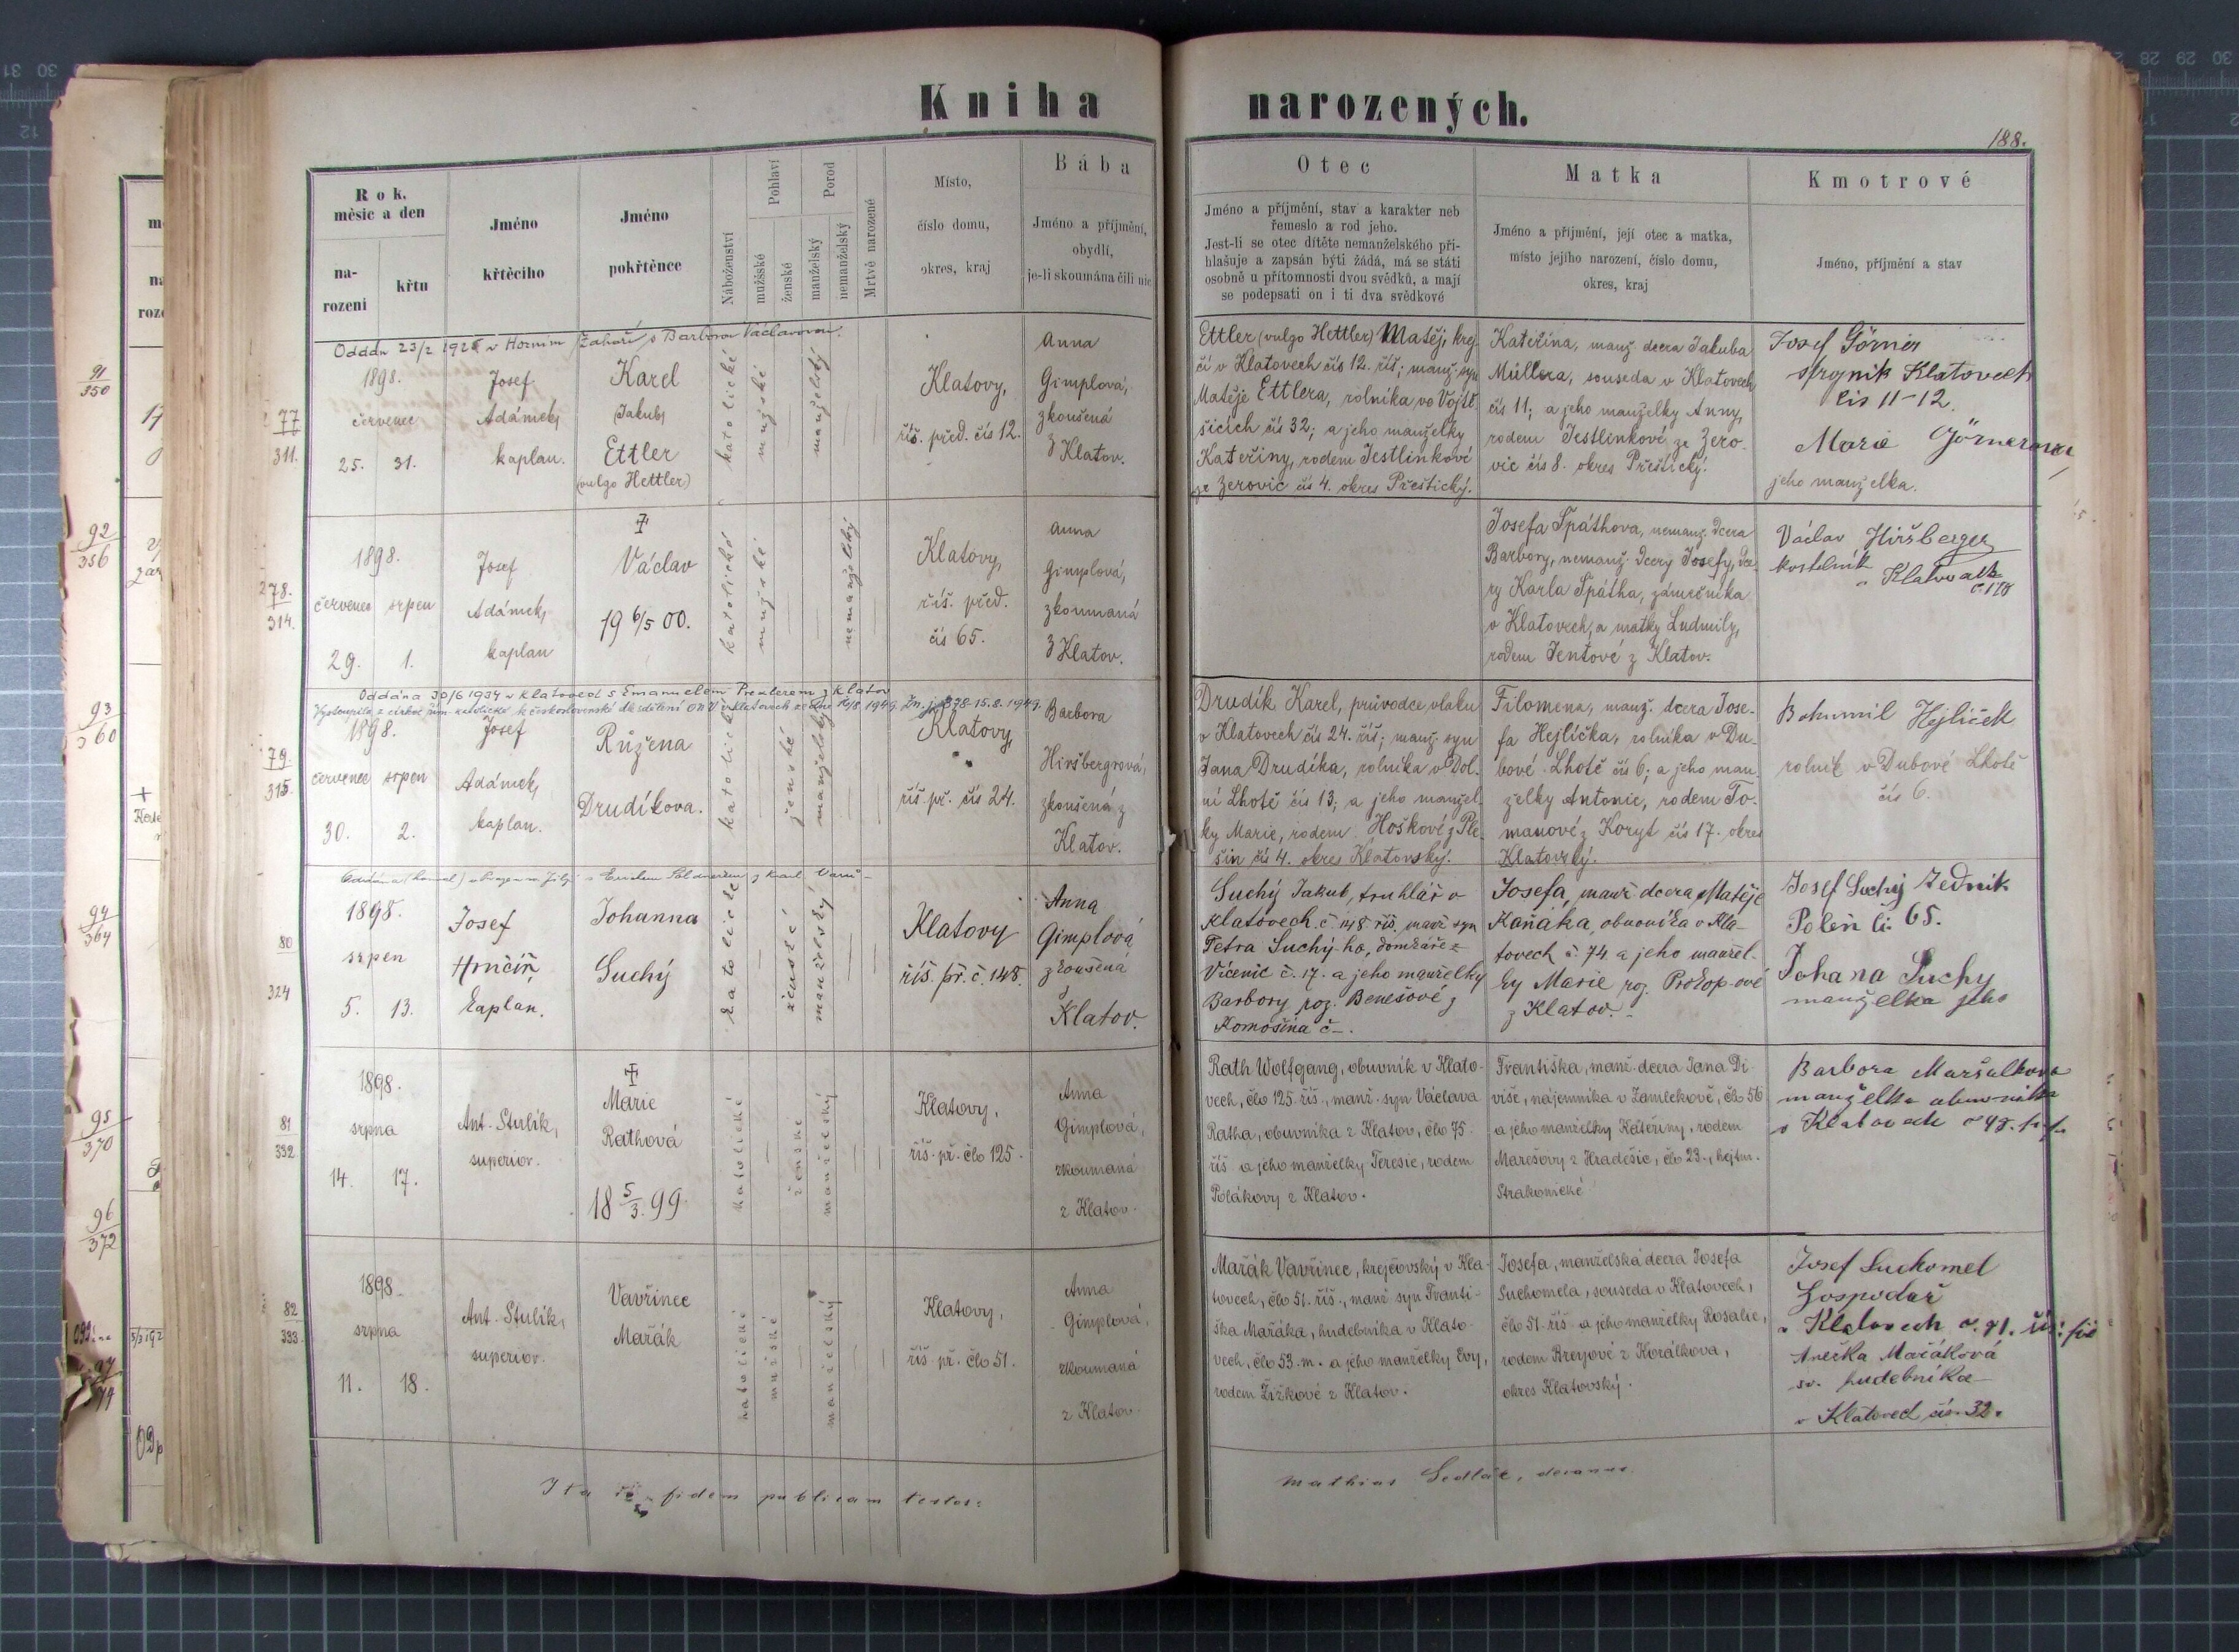 Kniha narozených.
188.
Rok.
měsíc a den
na-
rození
křtu
Jméno
křtícího
Jméno
pokřtěnce
Náboženství
Pohlaví
mužské
ženské
Porod
manželský
nemanželský
Mrtvě narozené
Místo,
číslo domu,
okres, kraj
Bába
Jméno a příjmění,
obydlí,
je-li skoumána čili nic
Otec
Jméno a příjmění, stav a karakter neb
řemeslo a rod jeho.
Jest-li se otec dítěte nemanželského při-
hlašuje a zapsán býti žádá, má se státi
osobně u přítomnosti dvou svědků, a mají
se podepsati on i ti dva svědkové
Matka
Jméno a příjmění, její otec a matka,
místo jejího narození, číslo domu,
okres, kraj
Kmotrové
Jméno, příjmění a stav
91
350
92
356
93
360
94
364
95
370
96
372
77
311.
Oddán 23/2 1925 v Horním Záhoří s Barborou Václavovou.
1898.
červenec
25. 31.
Josef
Adámek,
kaplan.
Karel
(Jakub)
Ettler
(vulgo Hettler)
katolické
mužské
manželský
Klatovy,
říš. před. čís 12.
Anna
Gimplová,
zkoušená
z Klatov.
Ettler (vulgo Hettler) Matěj, krej-
čí v Klatovech čís 12. říš; manž. syn
Matěje Ettlera, rolníka ve Vojtě-
šicích čís 32; a jeho manželky
Kateřiny, rodem Jestlinkové
ze Zerovic čís 4. okres Přeštický.
Kateřina, manž. dcera Jakuba
Müllera, souseda v Klatovech,
čís 11; a jeho manželky Anny,
rodem Jestlinkové ze Zero-
vic čís 8. okres Přeštický.
Josef Görner
Klatovech
čís 11-12.
Marie Görnerova
jeho manželka.
278.
314.
1898.
červenec srpen
29. 1.
Josef
Adámek,
kaplan
Václav
19 6/5 00.
katolické
mužské
nemanželský
Klatovy,
říš. před.
čís 65.
Anna
Gimplová,
zkoumaná
z Klatov.
Josefa Špáthova, nemanž. dcera
Barbory, nemanž. dcery Josefy, dce-
ry Karla Špátha, zámečníka
v Klatovech, a matky Ludmily,
rodem Jentové z Klatov.
Václav Hiršberger
kostelník
v Klatovech
č. 170
79.
315.
Oddána 30/6 1934 v Klatovech s Emanuelem Prexlerem z Klatov
1898.
červenec srpen
30. 2.
Josef
Adámek,
kaplan.
Růžena
Drudíkova.
katolické
ženské
manželský
Klatovy,
říš. př. čís 24.
Barbora
Hiršbergrová,
zkoušená z
Klatov.
Drudík Karel, průvodce vlaku
v Klatovech čís 24. říš; manž. syn
Jana Drudíka, rolníka v Dol-
ní Lhotě čís 13; a jeho manžel-
ky Marie, rodem Hoškové z Ple-
šin čís 4. okres Klatovský.
Filomena, manž. dcera Jose-
fa Hejlíčka, rolníka v Du-
bové Lhotě čís 6; a jeho man-
želky Antonie, rodem To-
manové z Koryt čís 17. okres
Klatovský.
Bohumil Hejlíček
rolník v Dubové Lhotě
čís 6.
80
324
1898.
srpen
5. 13.
Josef
Hrnčíř,
kaplan.
Johanna
Suchý
katolické
ženské
manželský
Klatovy
říš. př. č. 148.
Anna
Gimplová
zkoušená
z
Klatov.
Suchý Jakub, truhlář v
Klatovech č. 148 říš. manž. syn
Petra Suchý-ho, domkáře z
Vícenic č. 17. a jeho manželky
Barbory roz. Benešové z
Komošína č-.
Josefa, manž. dcera Matěje
Kaňáka, obuvníka v Kla-
tovech č. 74 a jeho manžel-
ky Marie roz. Prokop-ové
z Klatov.
Josef Suchý zedník
Poleň čí. 65.
Johana Suchy
manželka jeho
81
332
1898.
srpna
14. 17.
Ant. Stulík,
superior.
Marie
Rathová
18 5/3. 99.
katolické
ženské
manželský
Klatovy,
říš. př. člo 125.
Anna
Gimplová,
zkoumaná
z Klatov.
Rath Wolfgang, obuvník v Klato-
vech, člo 125. říš., manž. syn Václava
Ratha, obuvníka z Klatov, člo 75
říš a jeho manželky Teresie, rodem
Polákovy z Klatov.
Františka, manž. dcera Jana Di-
više, nájemníka v Zamlekově, člo 56
a jeho manželky Kateřiny, rodem
Marešovy z Hradešic, člo 23., hejtm.
Strakonické
Barbora Maršalkova
manželka obuvníka
v Klatovech
82
333.
1898.
srpna
11. 18.
Ant. Stulík,
superior.
Vavřinec
Mařák
katolické
mužské
manželský
Klatovy,
říš. př. člo 51.
Anna
Gimplová,
zkoumaná
z Klatov.
Mařák Vavřinec, krejčovský v Kla-
tovech, člo 51. říš., manž syn Franti-
ška Mařáka, hudebníka v Klato-
vech, člo 53. m. a jeho manželky Evy,
rodem Žižkové z Klatov.
Josefa, manželská dcera Josefa
Suchomela, souseda v Klatovech,
člo 51. říš. a jeho manželky Rosalie,
rodem Kreyové z Korálkova,
okres Klatovský.
Josef Suchomel
hospodář
v Klatovech
Anežka Mařáková
hudebníka
v Klatovech čís. 32.
Ita ad fidem publicam testor:
Mathias Sedlák, decanus.